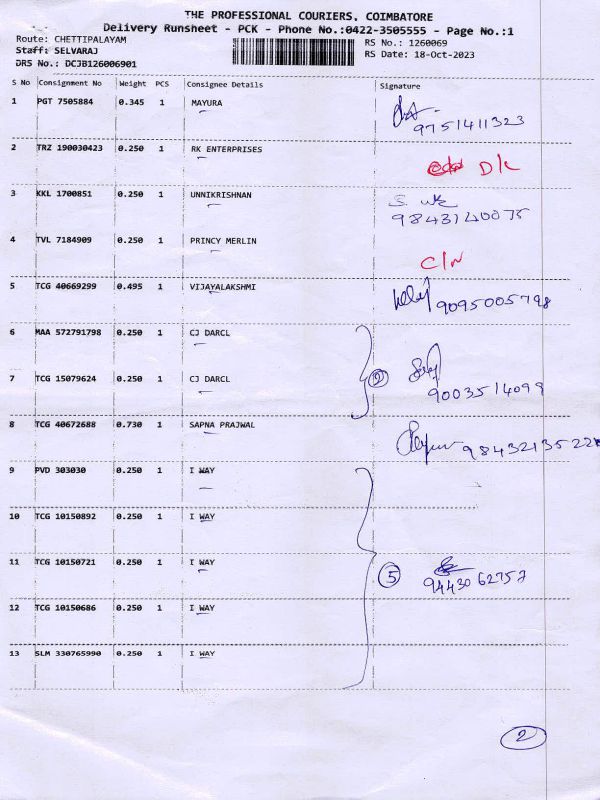 THE PROFESSIONAL COURIERS, COIMBATORE
Delivery Runsheet - PCK - Phone No.:0422-3505555 - Page No.:1
Route: CHETTIPALAYAM RS No.: 1260069
Staff: SELVARAJ RS Date: 18-Oct-2023
DRS No.: DCJB126006901
S No Consignment No Weight PCS Consignee Details Signature
1 PGT 7505884 0.345 1 MAYURA
9751411323
2 TRZ 190030423 0.250 1 RK ENTERPRISES
D/L
3 KKL 1700851 0.250 1 UNNIKRISHNAN
9843140075
4 TVL 7184909 0.250 1 PRINCY MERLIN
C/N
5 TCG 40669299 0.495 1 VIJAYALAKSHMI
9095005798
6 MAA 572791798 0.250 1 CJ DARCL
7 TCG 15079624 0.250 1 CJ DARCL
9003514099
8 TCG 40672688 0.730 1 SAPNA PRAJWAL
9 PVD 303030 0.250 1 I WAY
10 TCG 10150892 0.250 1 I WAY
11 TCG 10150721 0.250 1 I WAY
5
9443062757
12 TCG 10150686 0.250 1 I WAY
13 SLM 330765990 0.250 1 I WAY
2